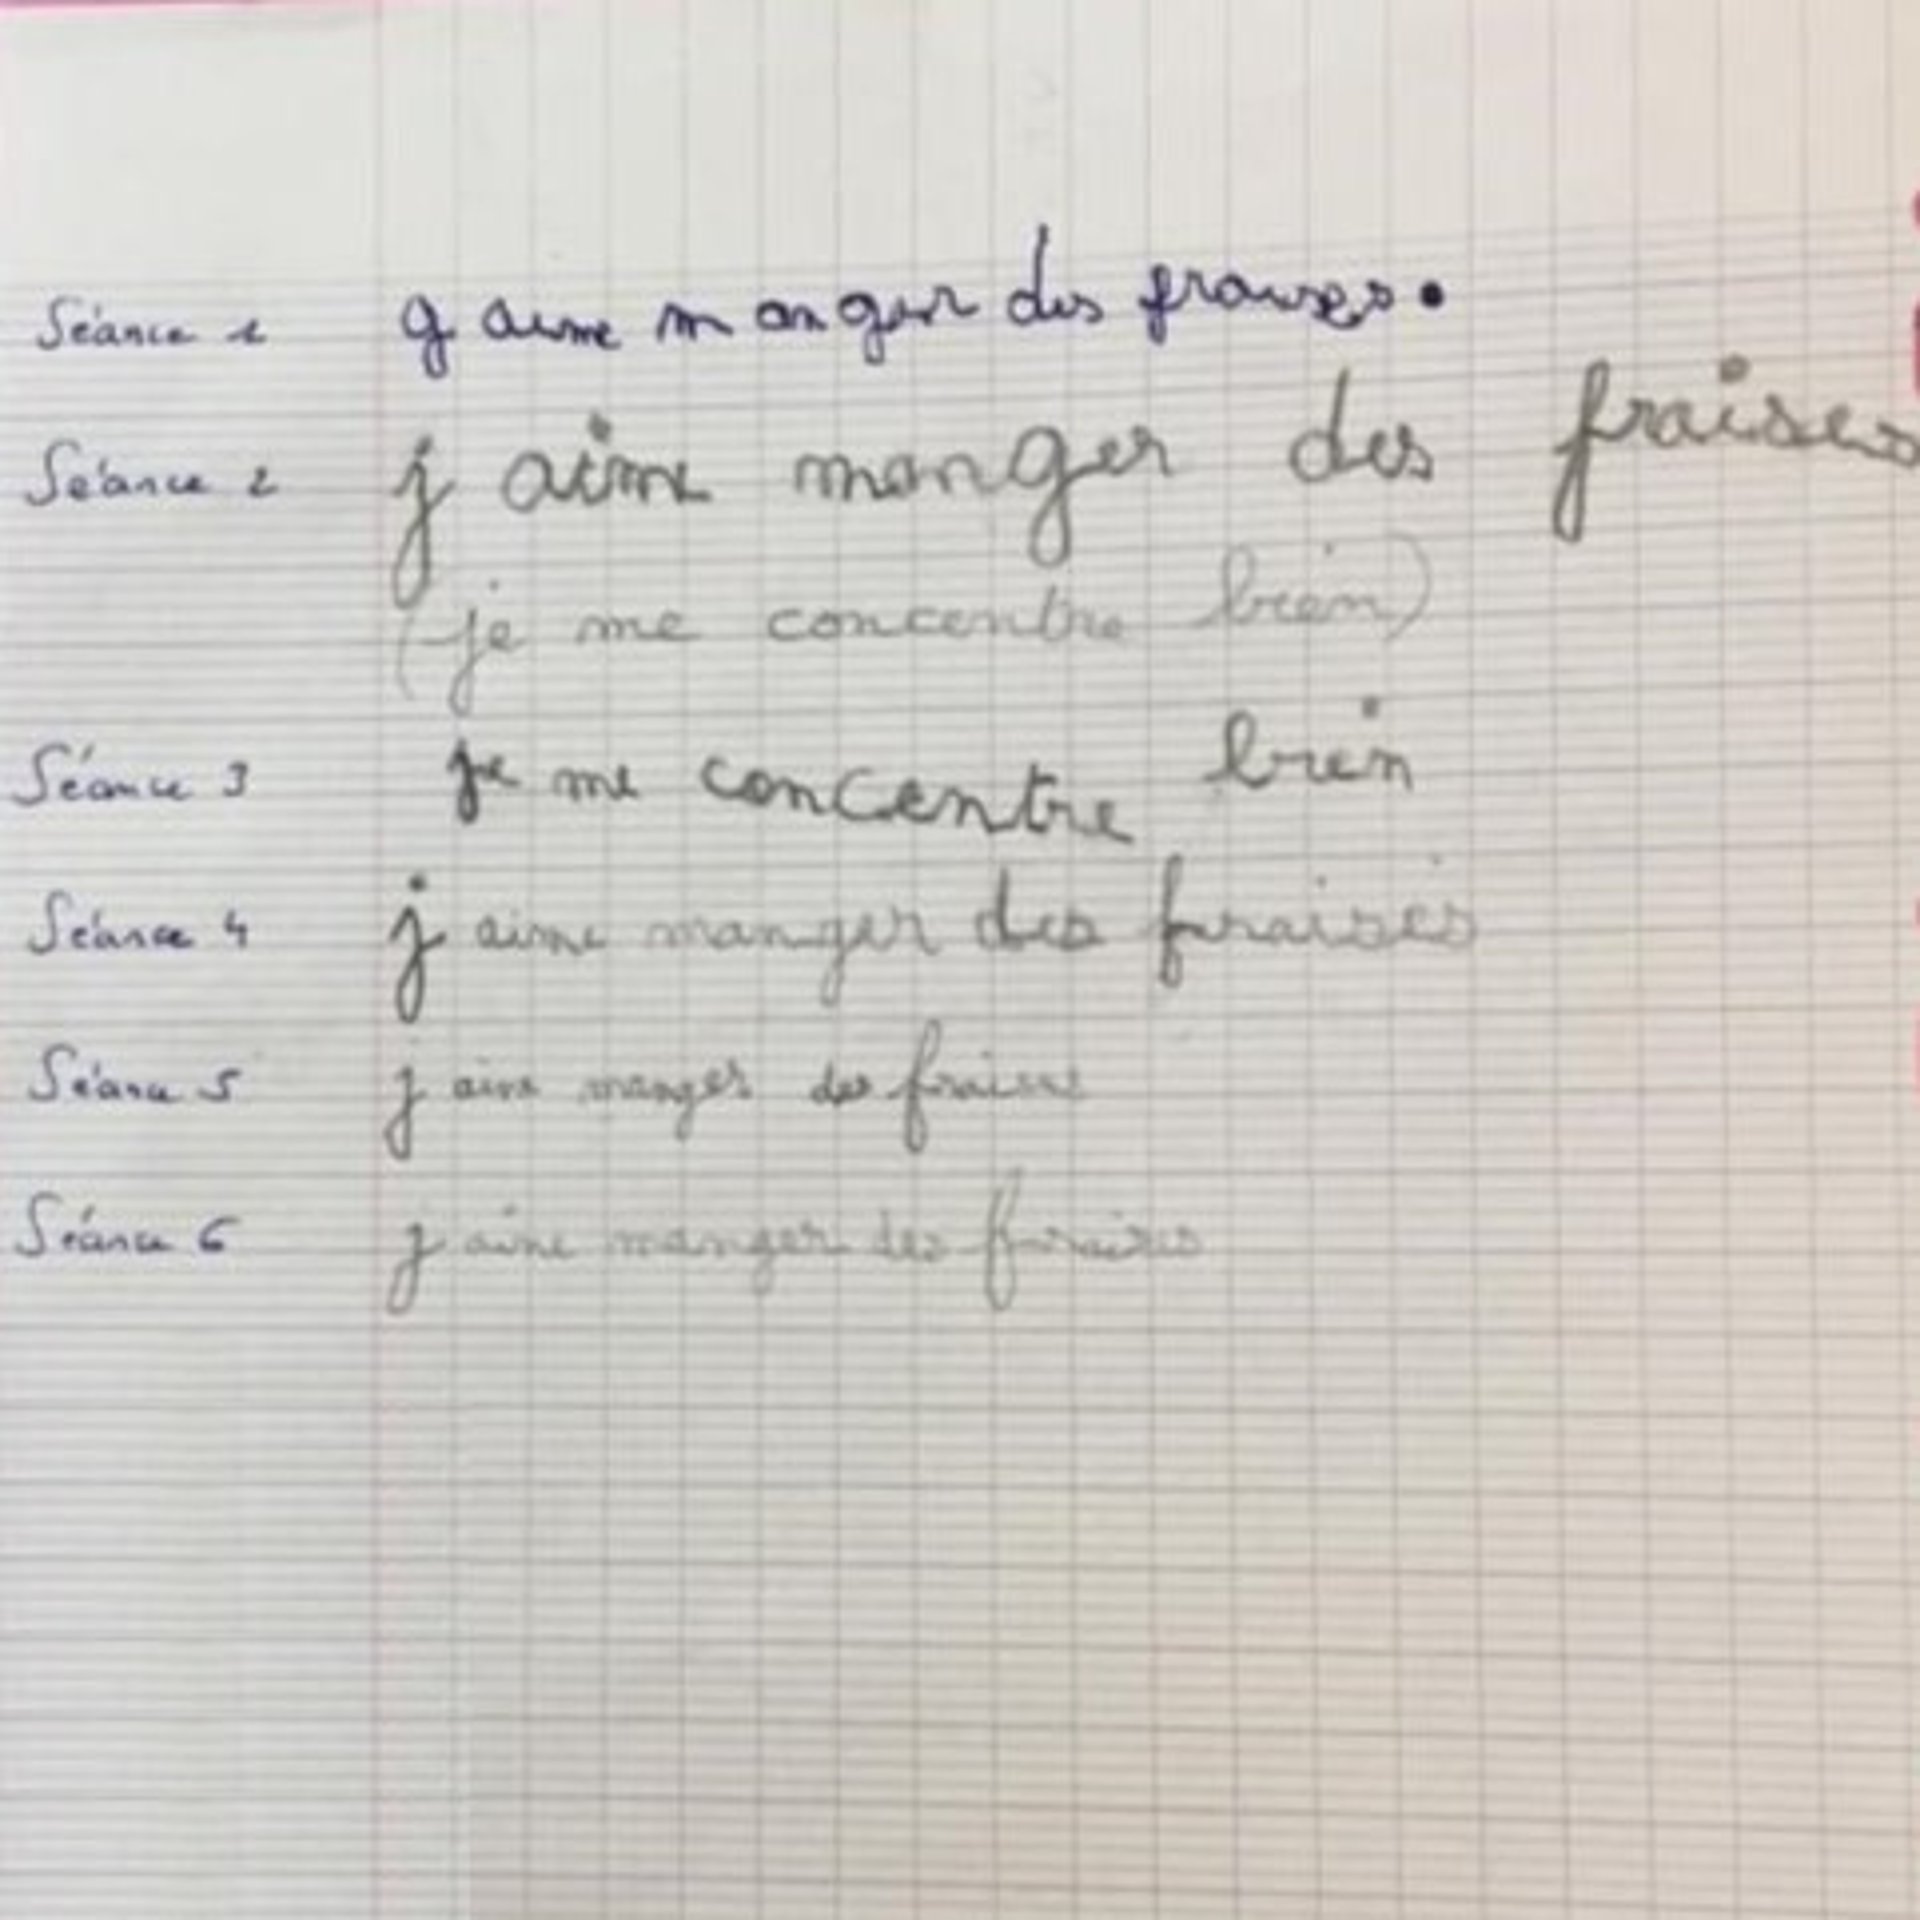 Séance 1 g aime manger des fraises.
Séance 2 j aime manger des fraises
(je me concentre bien)
Séance 3 je me concentre bien
Séance 4 j aime manger des fraises
Séance 5 j aime manger des fraises
Séance 6 j aime manger des fraises